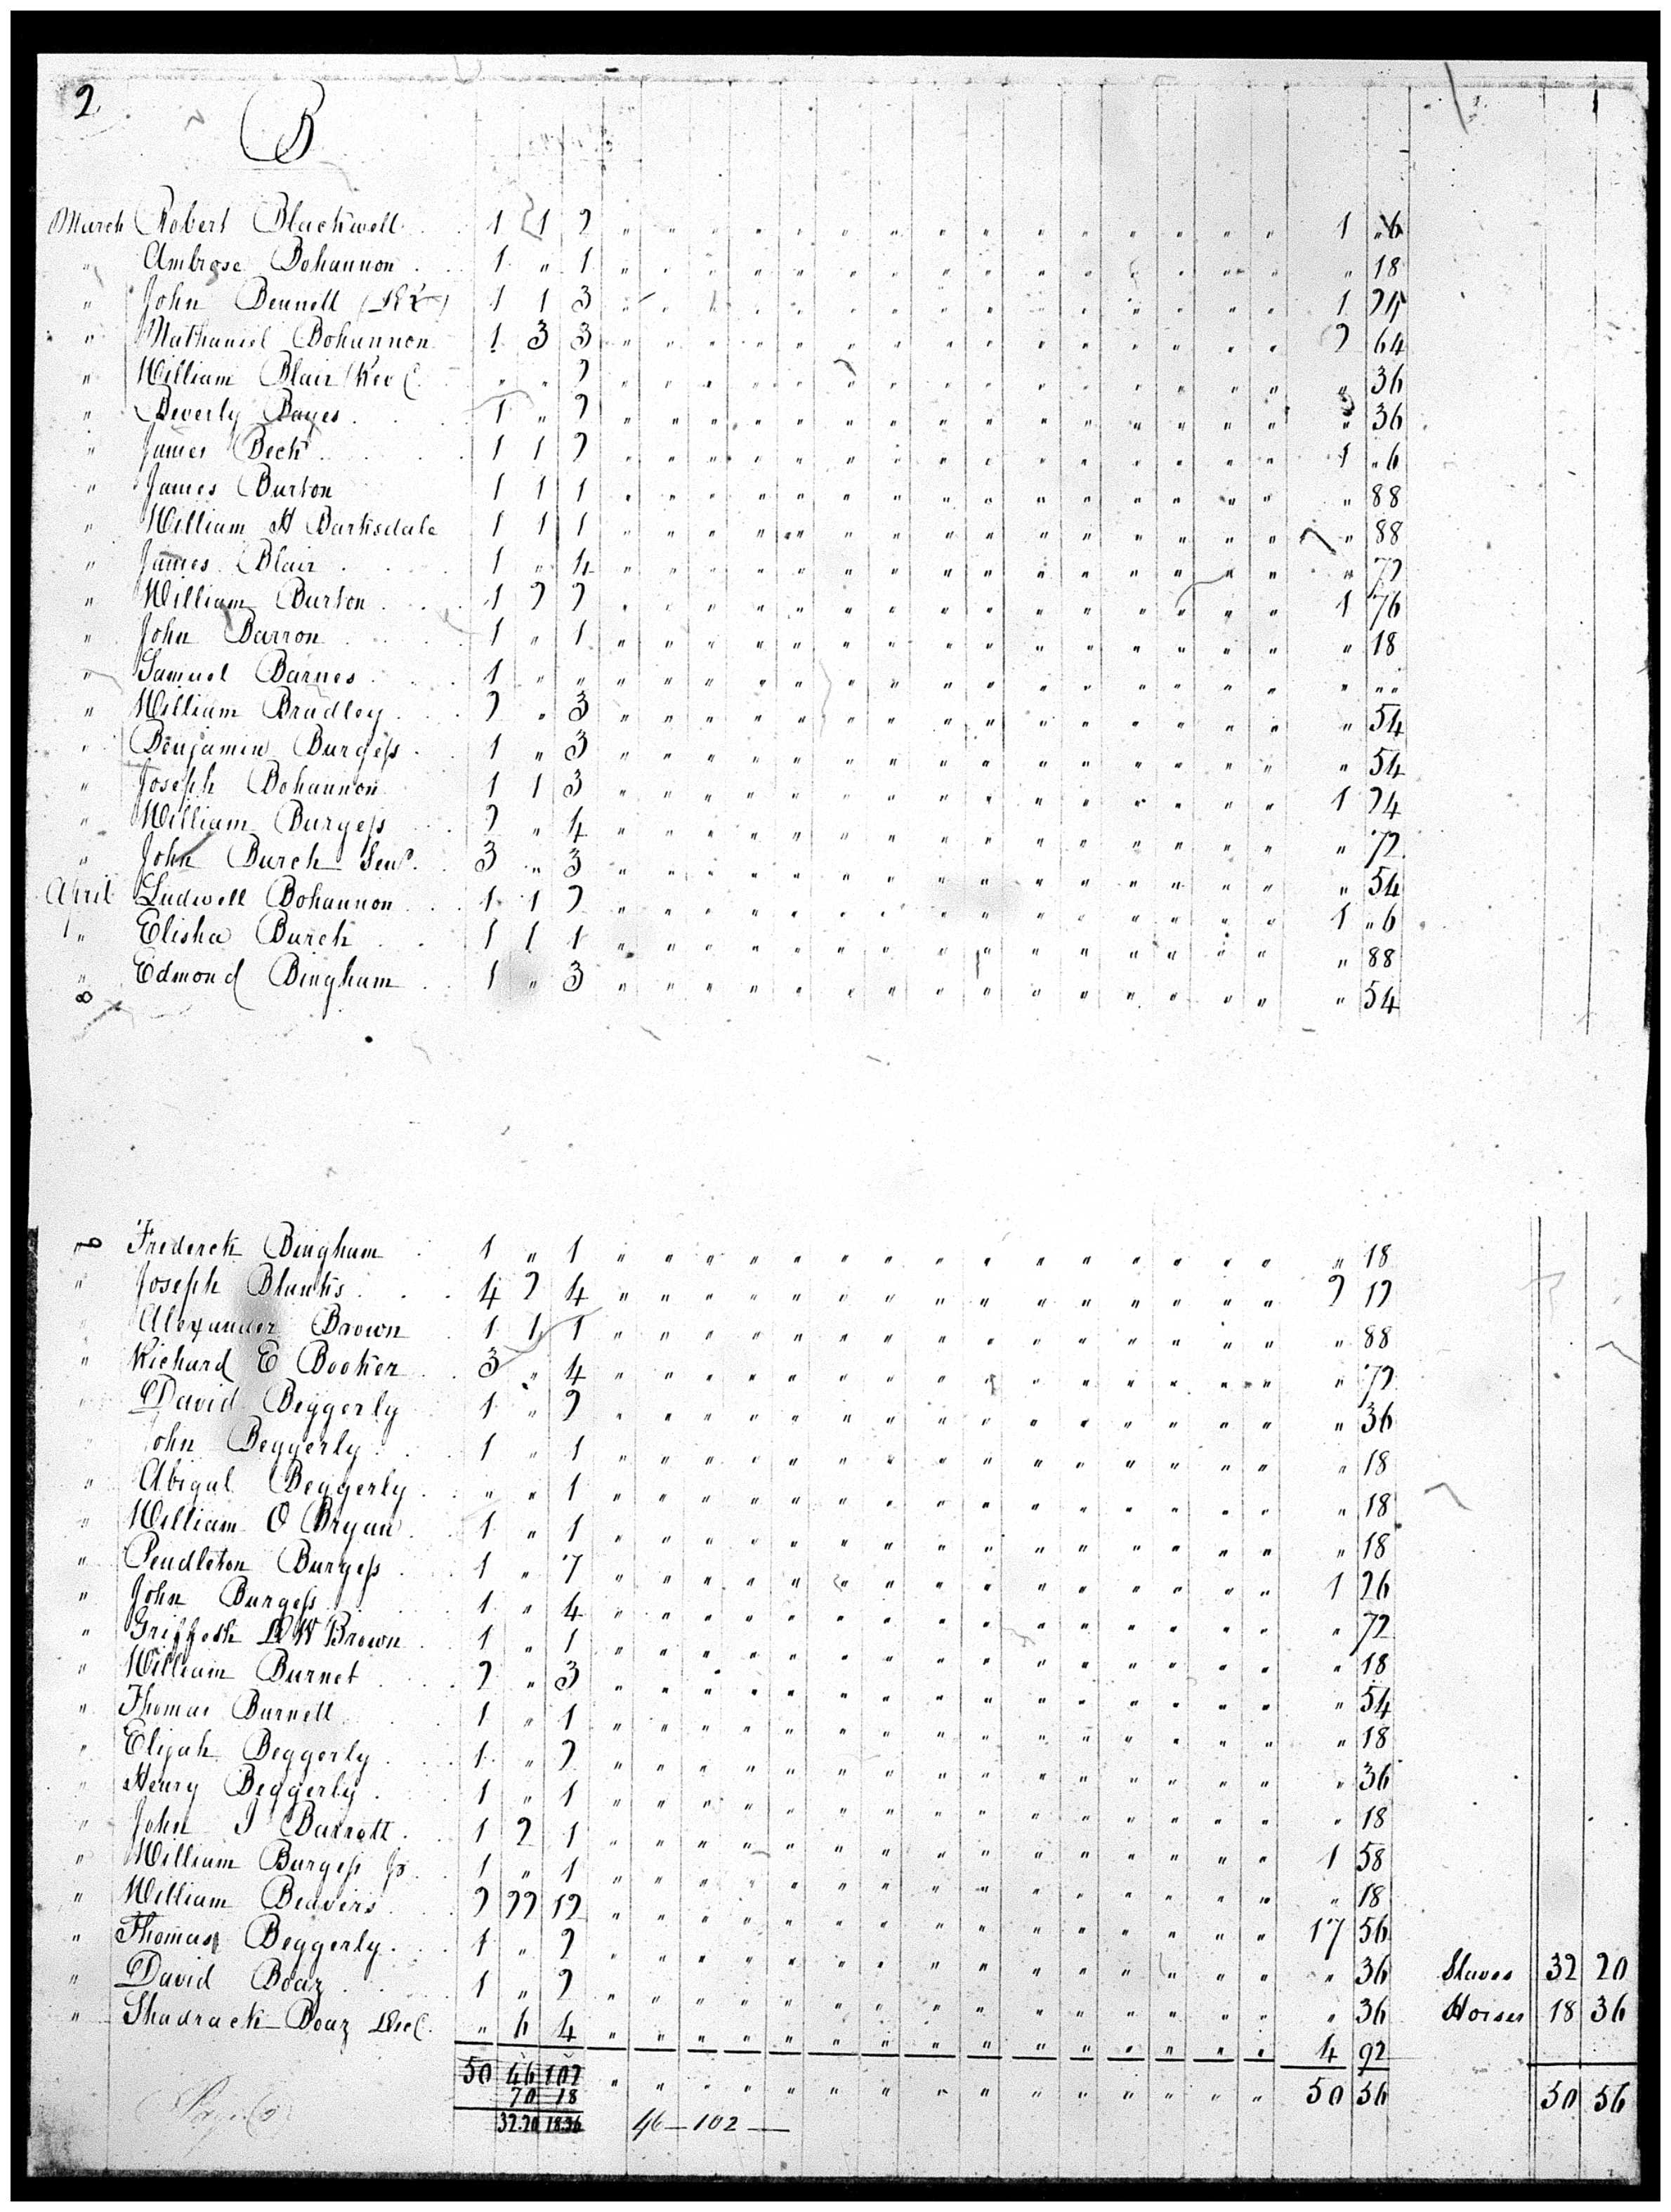 2
B
March Robert Blackwell 1 1 2 " " " " " " " " " " " " " " " 1 " 6
" Ambrose Bohannon 1 " 1 " " " " " " " " " " " " " " " " 18
" John Bennett 1 1 3 " " " " " " " " " " " " " " " 1 24
" Nathaniel Bohannon 1 3 3 " " " " " " " " " " " " " " " 2 64
" William Blair Rev " " 2 " " " " " " " " " " " " " " " " 36
" Beverly Bayes 1 " 2 " " " " " " " " " " " " " " " " 36
" James Beck 1 1 2 " " " " " " " " " " " " " " " 1 " 6
" James Burton 1 1 1 " " " " " " " " " " " " " " " " 88
" William H Barksdale 1 1 1 " " " " " " " " " " " " " " " " 88
" James Blair 1 " 4 " " " " " " " " " " " " " " " " 72
" William Burton 1 2 2 " " " " " " " " " " " " " " " 1 76
" John Barron 1 " 1 " " " " " " " " " " " " " " " " 18
" Samuel Barnes 1 " " " " " " " " " " " " " " " " " " " "
" William Bradley 2 " 3 " " " " " " " " " " " " " " " " 54
" Benjamin Burgess 1 " 3 " " " " " " " " " " " " " " " " 54
" Joseph Bohannon 1 1 3 " " " " " " " " " " " " " " " 1 24
" William Burgess 2 " 4 " " " " " " " " " " " " " " " " 72
" John Burch Senr. 3 " 3 " " " " " " " " " " " " " " " " 54
April Ludwell Bohannon 1 1 2 " " " " " " " " " " " " " " " 1 " 6
" Elisha Burch 1 1 1 " " " " " " " " " " " " " " " " 88
" Edmond Bingham 1 " 3 " " " " " " " " " " " " " " " " 54
" Frederck Bingham 1 " 1 " " " " " " " " " " " " " " " " 18
" Joseph Blanks 4 2 4 " " " " " " " " " " " " " " " 2 12
" Alexander Brown 1 1 1 " " " " " " " " " " " " " " " " 88
" Richard E Booker 3 " 4 " " " " " " " " " " " " " " " " 72
" David Beggerly 1 " 2 " " " " " " " " " " " " " " " " 36
" John Beggerly 1 " 1 " " " " " " " " " " " " " " " " 18
" Abigal Beggerly " " 1 " " " " " " " " " " " " " " " " 18
" William O Bryan 1 " 1 " " " " " " " " " " " " " " " " 18
" Pendleton Burgess 1 " 7 " " " " " " " " " " " " " " " 1 26
" John Burgess 1 " 4 " " " " " " " " " " " " " " " " 72
" Griffeth D W Brown 1 " 1 " " " " " " " " " " " " " " " " 18
" William Burnet 2 " 3 " " " " " " " " " " " " " " " " 54
" Thomas Burnett 1 " 1 " " " " " " " " " " " " " " " " 18
" Elijah Beggerly 1 " 2 " " " " " " " " " " " " " " " " 36
" Henry Beggerly 1 " 1 " " " " " " " " " " " " " " " " 18
" John I Barrott 1 2 1 " " " " " " " " " " " " " " " 1 58
" William Burgess Jr 1 " 1 " " " " " " " " " " " " " " " " 18
" William Beavers 2 22 12 " " " " " " " " " " " " " " " 17 56
" Thomas Beggerly 1 " 2 " " " " " " " " " " " " " " " " 36 Slaves 32 20
" David Boaz 1 " 2 " " " " " " " " " " " " " " " " 36 Horses 18 36
" Shadrack Boaz " 6 4 " " " " " " " " " " " " " " " 4 92
50 46 102 " " " " " " " " " " " " " " " 50 56 50 56
70 18
32.20 18.36 46–102